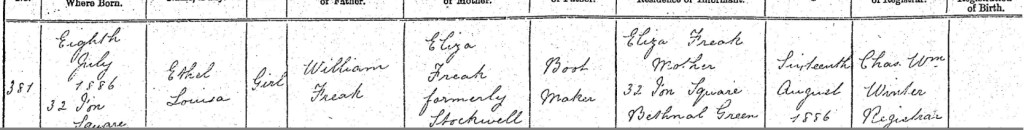 Where Born.
of Father.
of Mother.
of Father.
Residence of Informant.
of Registrar.
Registration
of Birth.
381
Eighth
July
1886
32 Ion
Square
Ethel
Louisa
Girl
William
Freak
Eliza
Freak
formerly
Stockwell
Boot
Maker
Eliza Freak
Mother
32 Ion Square
Bethnal Green
Sixteenth
August
1886
Chas. Wm
Winter
Registrar